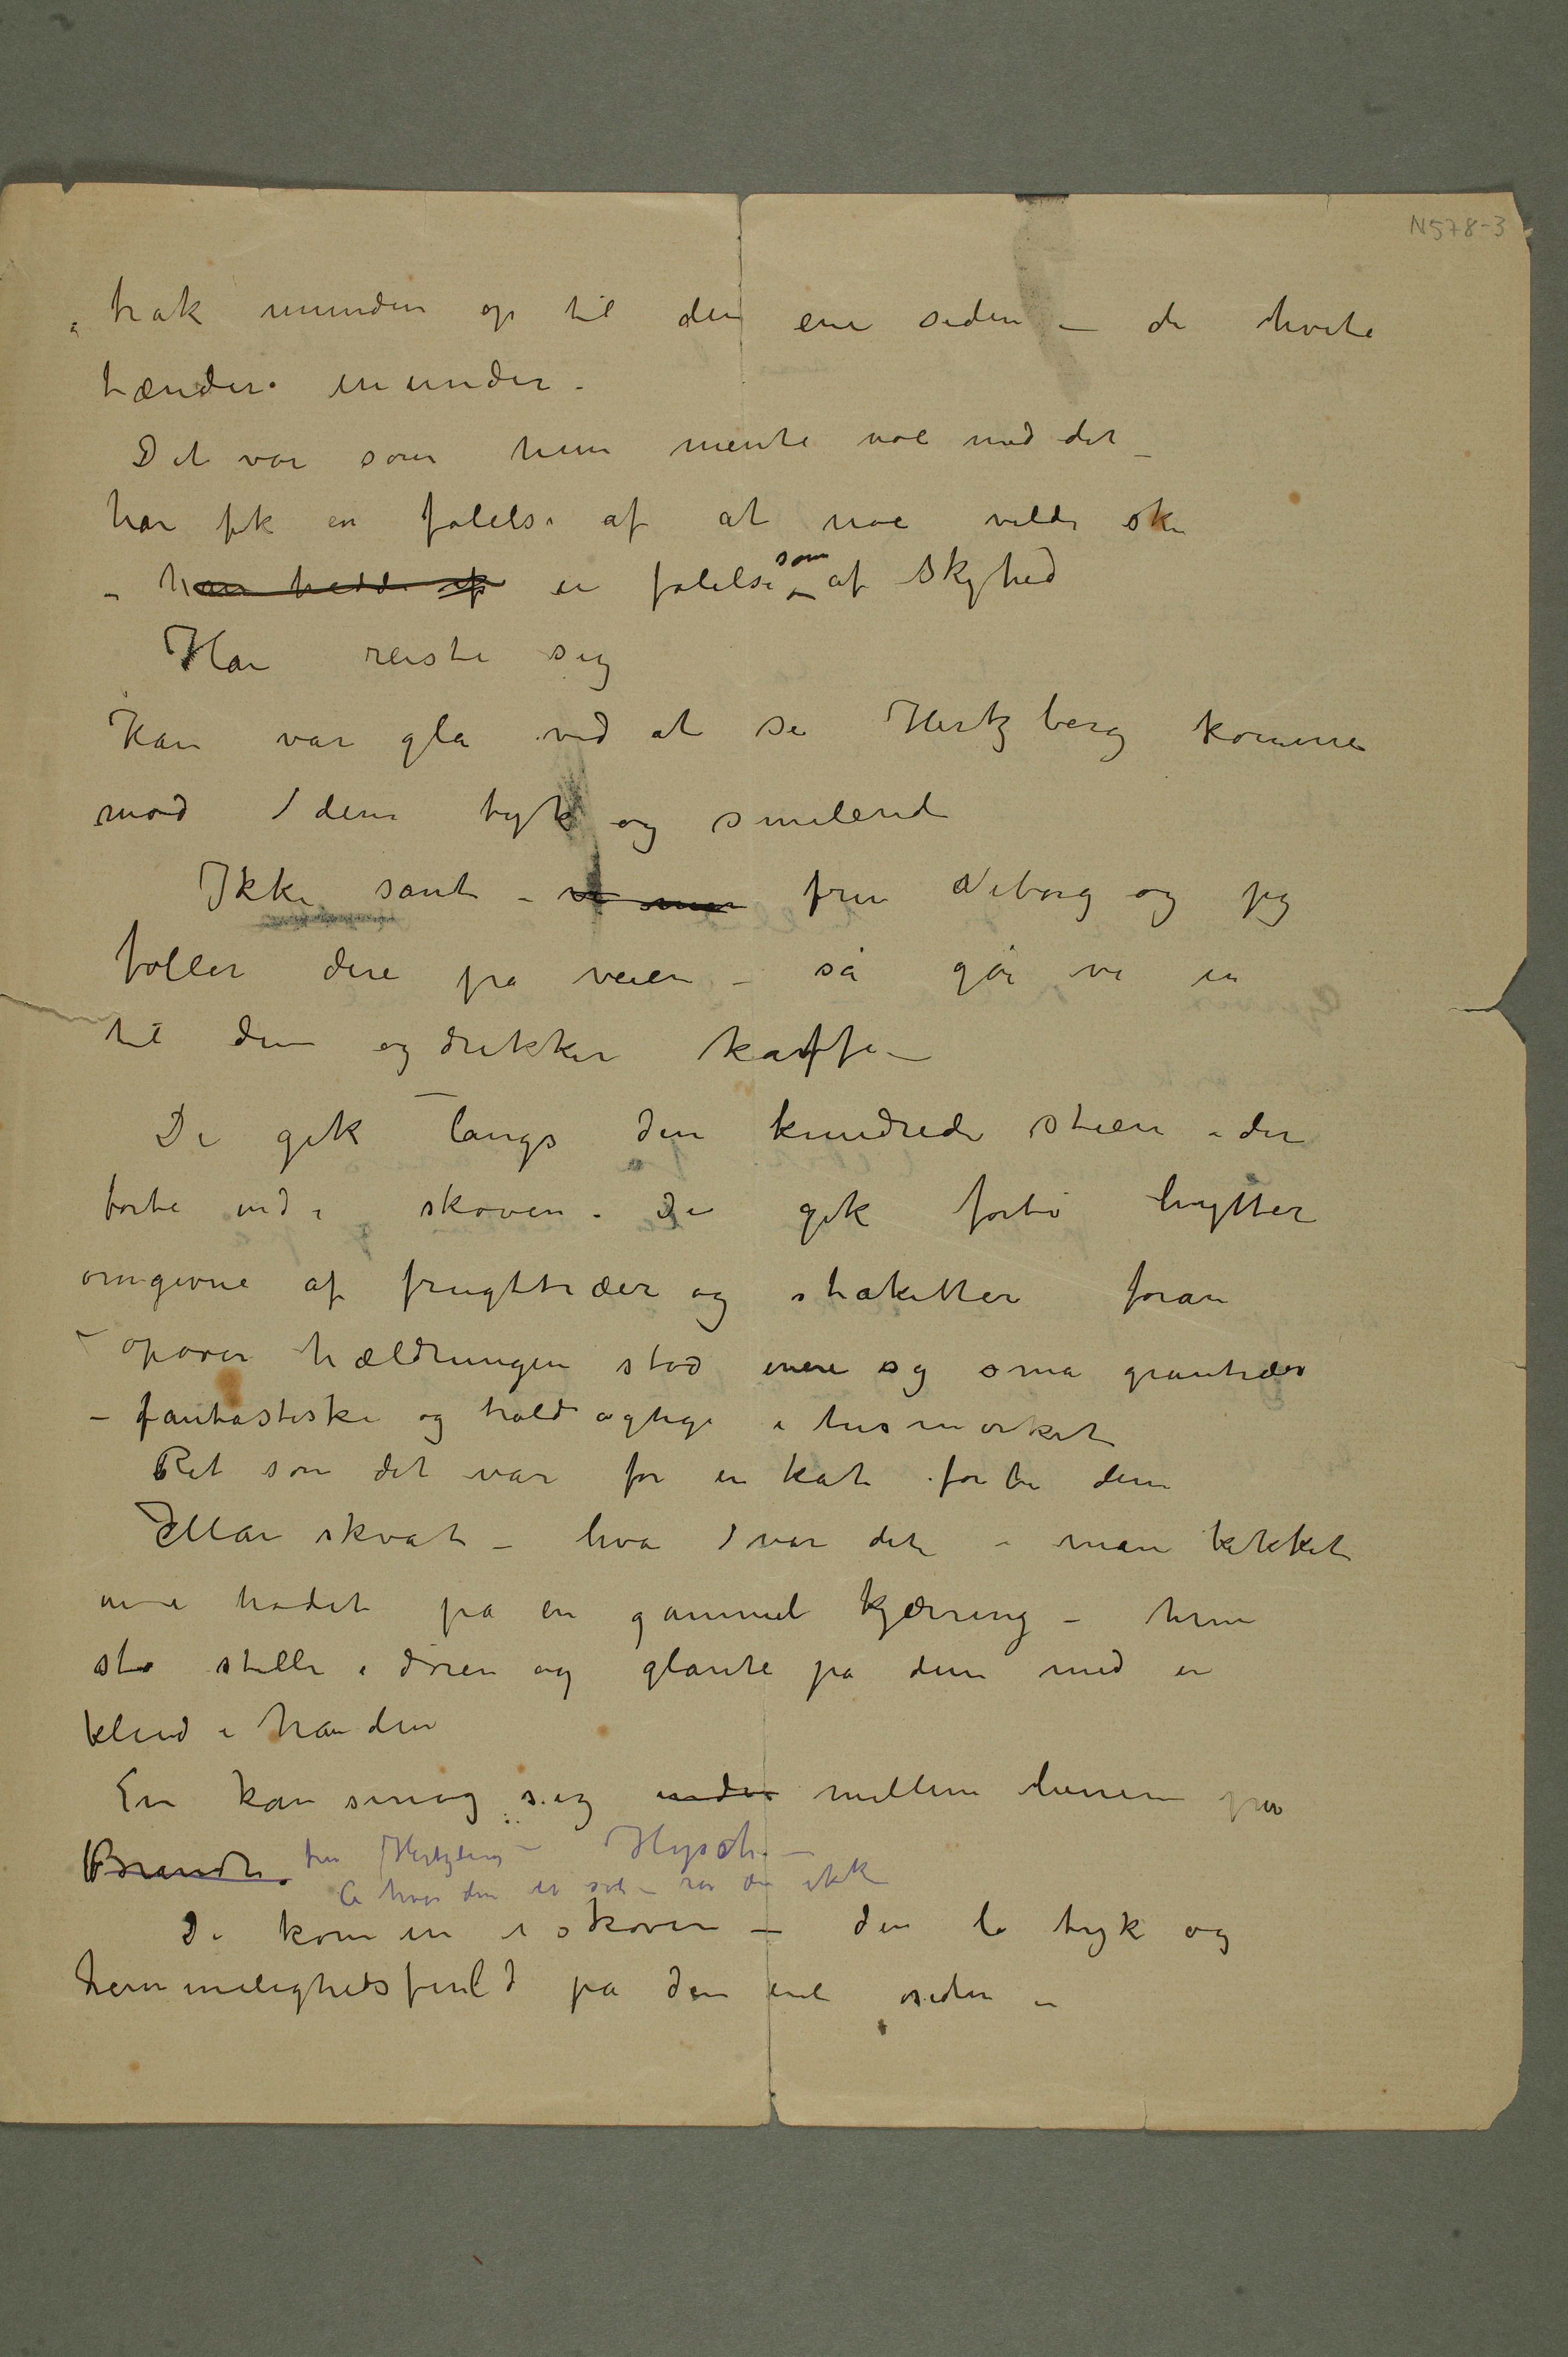 N578-3
trak munden op til den ene siden – de hvite
tænder inunder –
Det var som hun mente noe med det –
han fik en følelse af at noe vilde ske
– han hadde af en følelse som af skyhed
Han reiste sig
Han var gla ved at se Hertzberg komme
mod dem tyk og smilende
Ikke sant – vi fru Neborg og jeg
føller dere på veien – så går vi in
til dem og drikker kaffe –
De gik langs den krundrede stien – der
førte ind i skoven. De gik forbi hytter
omgivne af frugttræer og staketter foran
– opover hældningen stod enere og små grantrær
– fantastiske og troldagtige i tusmørket
Ret som det var for en kat forbi dem
Man skvat – hva var det – man kikket
in i hodet på en gammel kjærring – hun
sto stille i døren og glante på dem med en
klud i hånden
En kan smøg sig under mellem benene på
Brandt. fru Hertzberg – Hysch –
A hvor den er søt – rør den ikke
De kom in i skoven – den lå tyk og
hemmelighedsfuld på den ene siden –